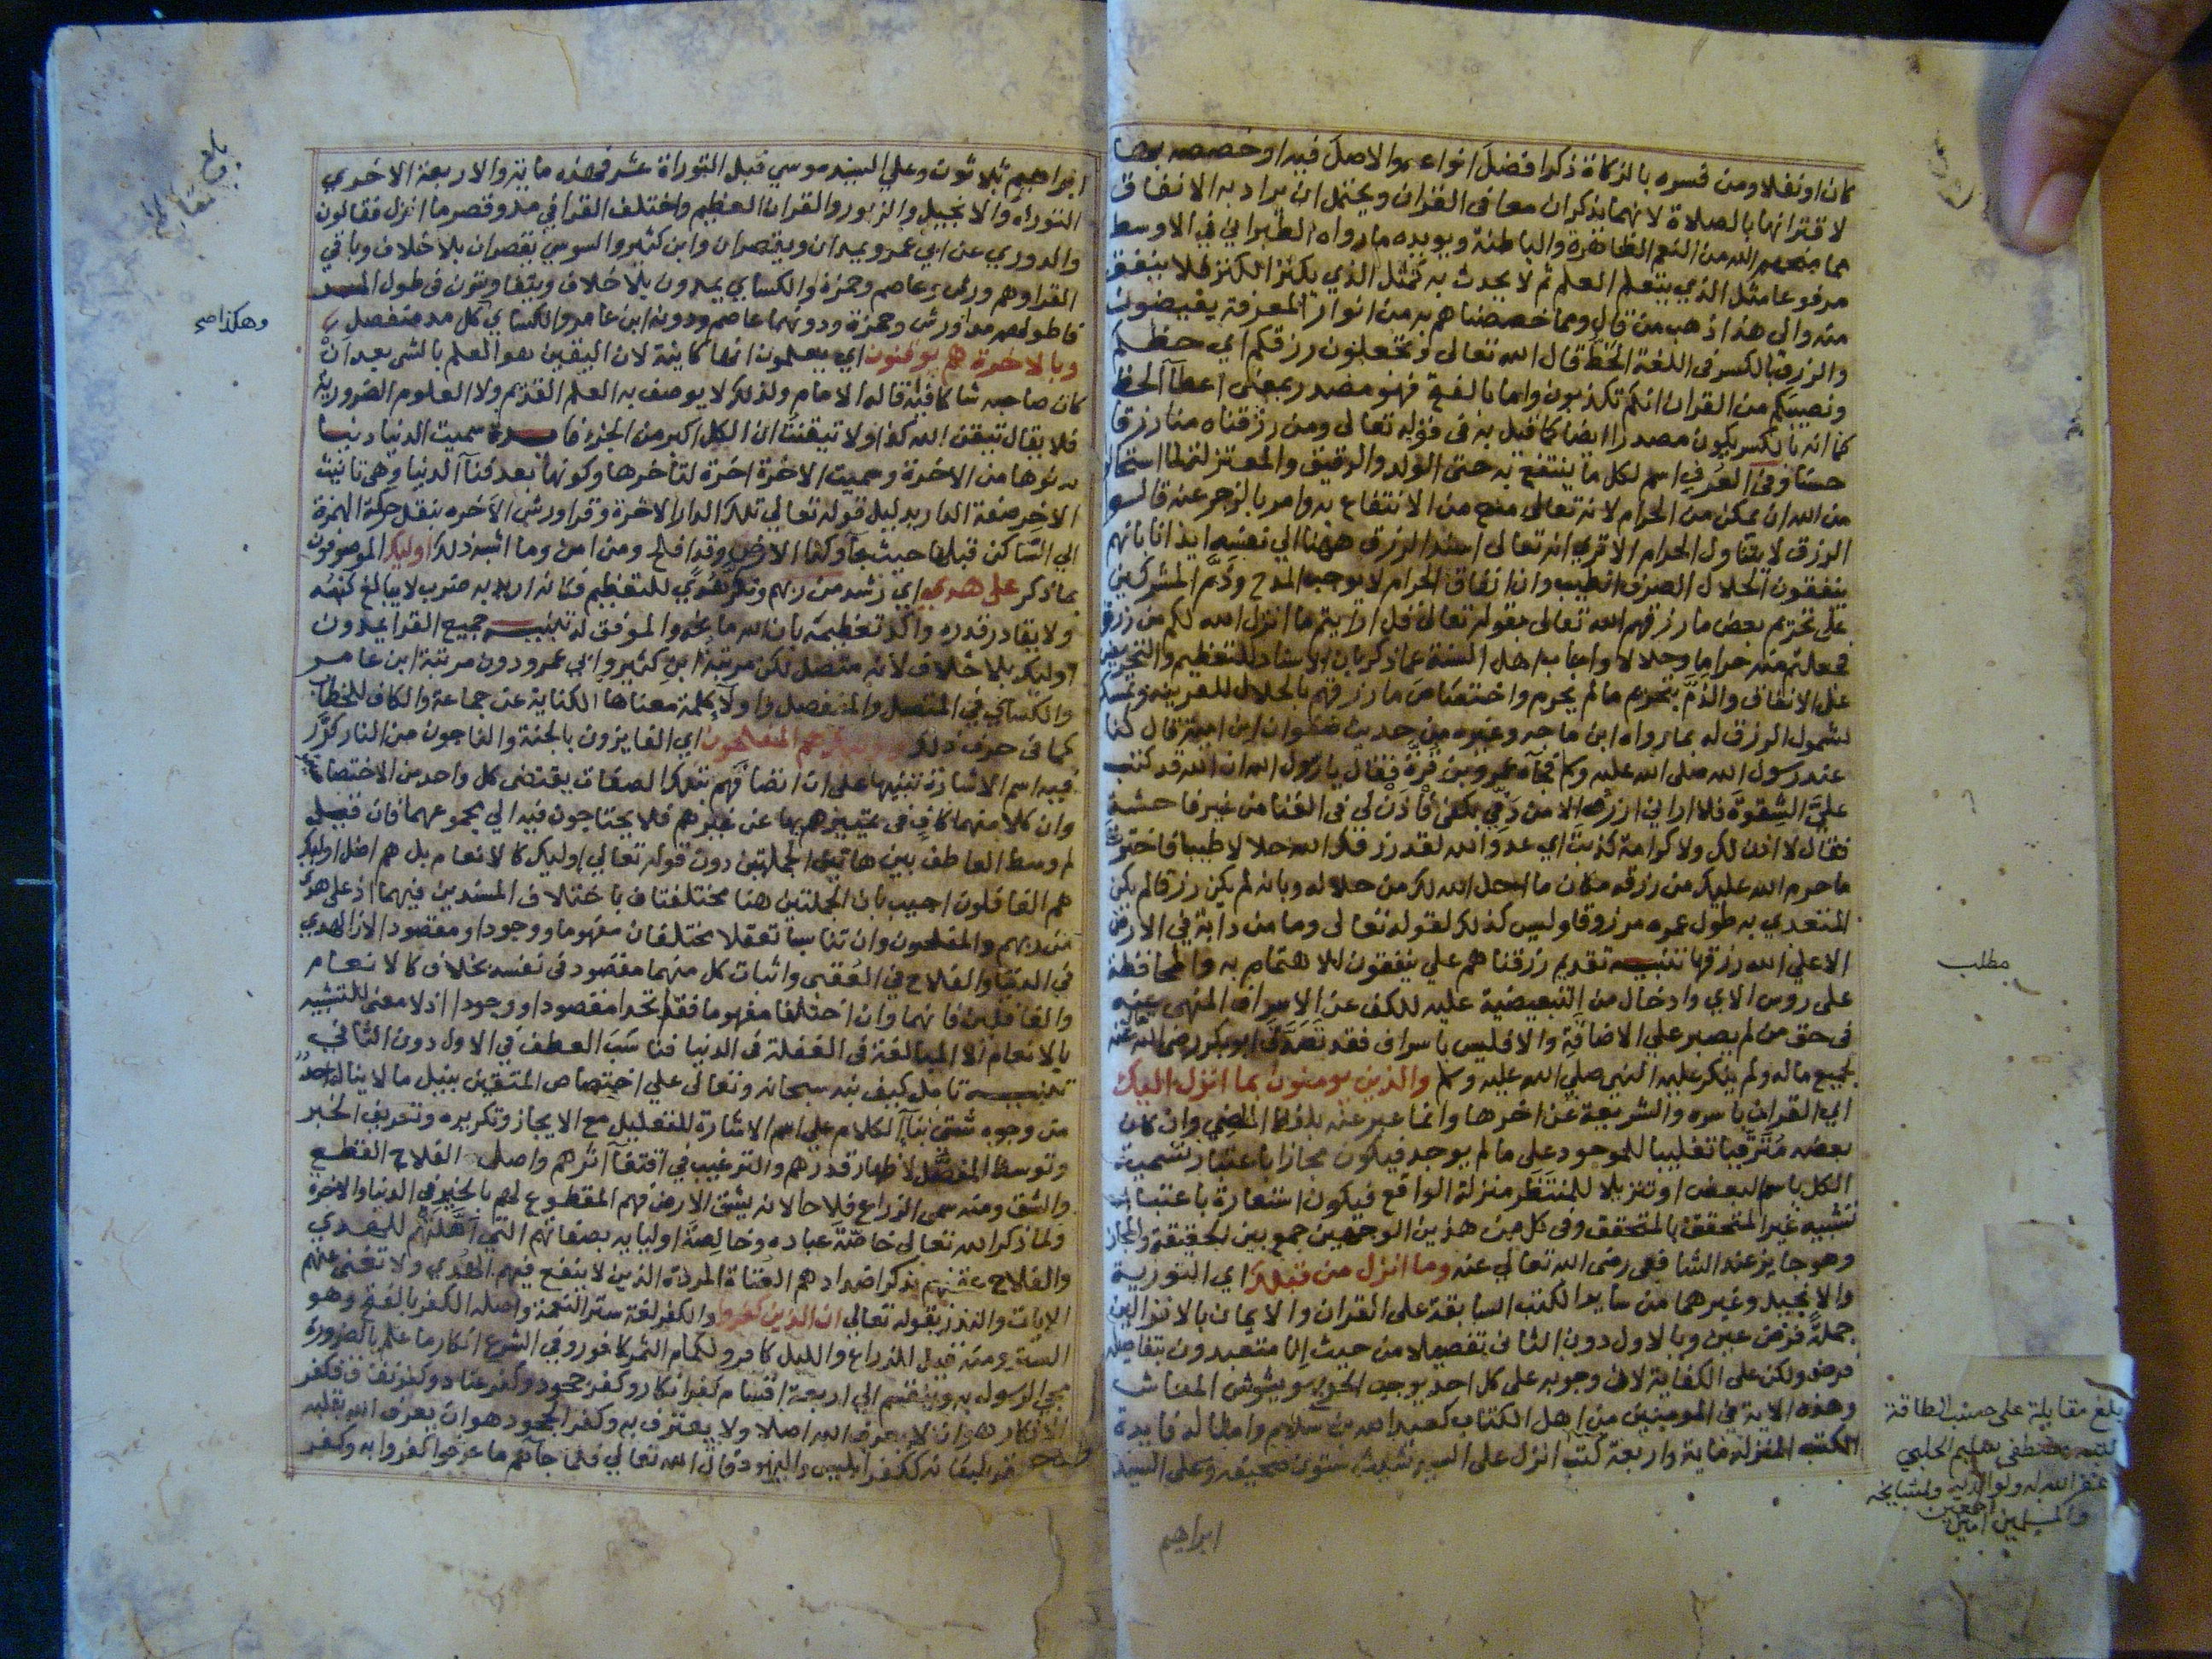 كان او نفلا ومن فسره بالزكاة ذكر افضل انواعه والاصل فيه او خصصه بها
لاقترانها بالصلاة لانهما يذكران معا في القران ويحتمل ان يراد به الانفاق
مما منحهم الله من النعم الظاهرة والباطنة ويويده ما رواه الطبراني في الاوسط
مرفوعا مثل الذي يتعلم العلم ثم لا يحدث به كمثل الذي يكنز الكنز فلا ينفق
منه والى هذا ذهب من قال ومما خصصناهم به من انوار المعرفة يفيضون
والرزق بالكسر في اللغة الحظ قال الله تعالى وتجعلون رزقكم اي حظكم
ونصيبكم من القران انكم تكذبون واما بالفتح فهو مصدر بمعنى اعطآ الحظ
كما انه بالكسر يكون مصدرا ايضا كما قيل به في قوله تعالى ومن رزقناه منا رزقا
حسنا وفي العرف اسم لكل ما ينتفع به حتى الولد والرقيق والمعتزلة لما استحالوا
من الله ان يمكن من الحرام لانه تعالى منع من الانتفاع به وامر بالزجر عنه قالوا
الرزق لا يتناول الحرام الا ترى انه تعالى اسند الرزق ههنا الى نفسه ايذانا بانهم
ينفقون الحلال الصرف الطيب وان انفاق الحرام لا يوجب المدح وذم المشركين
على تحريم بعض ما رزقهم الله تعالى بقوله تعالى قل ارايتم ما انزل الله لكم من رزق
فجعلتم منه حراما وحلالا واجاب اهل السنة عما ذكر بان الاسناد للتعظيم والتحريض
على الانفاق والذم بتحريم ما لم يحرم واختصاص ما رزقهم بالحلال للقرينة وتمسكوا
لشمول الرزق له بما رواه ابن ماجه وغيره من حديث صفوان ابن امية قال كنا
عند رسول الله صلى الله عليه وسلم فجآه عمرو بن قرة فقال يا رسول الله ان الله قد كتب
علي الشقوة فلا اراني ارزق الا من دفي بكفي فأذن لي في الغنا من غير فاحشة
فقال لا اذن لك ولا كرامة كذبت اي عدو الله لقد رزقك الله حلالا طيبا فاخترت
ما حرم الله عليك من رزقه مكان ما احل الله لك من حلاله وبانه لم يكن رزقا لم يكن
المتغذي به طول عمره مرزوقا وليس كذلك لقوله تعالى وما من دابة في الارض
الا على الله رزقها تنبيه تقديم رزقناهم على ينفقون للاهتمام به والمحافظة
على روس الاي وادخال من التبعيضية عليه للكف عن الاسراف المنهى عنه
في حق من لم يصبر على الاضاقة والا فليس باسراف فقد تصدق ابو بكر رضي الله عنه
بجميع ماله ولم ينكر عليه النبي صلى الله عليه وسلم والذين يومنون بما انزل اليك
اي القران باسره والشريعة عن اخرها وانما عبر عنه بلفظ الماضي وان كان
بعضه مترقبا تغليبا للموجود على ما لم يوجد فيكون مجازا باعتبار تسمية
الكل باسم البعض او تنزيلا للمنتظر منزلة الواقع فيكون استعارة باعتبار
تشبيه غير المتحقق بالمتحقق وفي كل من هذين الوجهين جمع بين الحقيقة والمجاز
وهو جايز عند الشافعي رضي الله تعالى عنه وما انزل من قبلك اي التورية
والانجيل وغيرهما من ساير الكتب السابقة على القران والايمان بالانزالين
جملة فرض عين وبالاول دون الثاني تفصيلا من حيث انا متعبدون بتفاصيله
فرض ولكن على الكفاية لان وجوبه على كل احد يوجب الحرج ويشوش المعاش
وهذه الاية في المومنين من اهل الكتاب كعبد الله بن سلام وامثاله فايدة
الكتب المنزلة ماية واربعة كتب انزل على السيد شيث ستون صحيفة وعلى السيد
ابراهيم
مطلب
بلغ مقابلة على حسب الطاقة
كتبه مصطفى سليم الحلبي
غفر الله له ولوالديه ولمشايخه
والمسلمين اجمعين امين
ابراهيم ثلاثون وعلى السيد موسى قبل التوراة عشر فهذه ماية والاربعة الاخرى
التوراة والانجيل والزبور والقران العظيم واختلف القرا في مد وقصر ما انزل فقالون
والدوري عن ابي عمرو يمدان ويقصران وابن كثير والسوسي يقصران بلا خلاف وباقي
القرا وهم ورش وعاصم وحمزة والكسائي يمدون بلا خلاف ويتفاوتون في طول المد
فاطولهم مدا ورش وحمزة ودونهما عاصم ودونه ابن عامر والكسائي كل مد منفصل
وبالاخرة هم يوقنون اي يعلمون انها كاينة لان اليقين هو العلم بالشي بعد ان
كان صاحبه شاكا فيه قاله الامام ولذلك لا يوصف به العلم القديم ولا العلوم الضرورية
فلا يقال تيقن الله كذا ولا تيقنت ان الكل اكبر من الجزء فايدة سميت الدنيا دنيا
لدنوها من الاخرة وسميت الاخرة اخرة لتاخرها وكونها بعد فنآ الدنيا وهي تانيث
الاخر صفة الدار بدليل قوله تعالى تلك الدار الاخرة وقرا ورش الاخرة بنقل حركة الهمزة
الى الساكن قبلها حيث جآ وكذا الارض وقد افلح ومن امن وما اشبه ذلك اوليك الموصوفون
بما ذكر على هدى اي رشد من ربهم ونكر هدى للتعظيم فكانه اريد به ضرب لا يبالغ كنهه
ولا يقادر قدره واكد تعظيمه بان الله مانحه والموفق له تنبيه جميع القرا يمدون
اوليك بلا خلاف لانه متصل لكن مرتبة ابن كثير وابي عمرو دون مرتبة ابن عامر
والكسائي في المتصل والمنفصل واولا كلمة معناها الكناية عن جماعة والكاف للخطاب
كما في حرف ذلك واوليك هم المفلحون اي الفايزون بالجنة والناجون من النار كرر
فيه اسم الاشارة تنبيها على ان اتصافهم بتلك الصفات يقتضي كل واحد من الاختصاصين
وان كلا منهما كاف في تمييزهم بها عن غيرهم فلا يحتاجون فيه الى مجموعهما فان قيل
لم وسط العاطف بين هاتين الجملتين دون قوله تعالى اوليك كالانعام بل هم اضل اوليك
هم الغافلون اجيب بان الجملتين هنا مختلفتان باختلاف المسندين فيهما اذ على هدى
من ربهم والمفلحون وان تناسبا تعقلا مختلفان مفهوما ووجودا ومقصودا لان الهدى
في الدنيا والفلاح في العقبى واثبات كل منهما مقصود في نفسه بخلاف كالانعام
والغافلين فانهما وان اختلفا مفهوما فقد اتحدا مقصودا ووجودا اذ لا معنى للتشبيه
بالانعام الا المبالغة في الغفلة في الدنيا فناسب العطف في الاول دون الثاني
تنبيه تامل كيف نبه سبحانه وتعالى على اختصاص المتقين بنيل ما لا يناله احد
من وجوه شتى بنآ الكلام على اسم الاشارة للتعليل مع الايجاز وتكريره وتعريف الخبر
وتوسط الفصل لاظهار قدرهم والترغيب في اقتفآ اثرهم واصل الفلاح القطع
والشق ومنه سمى الزراع فلاحا لانه يشق الارض فهم المقطوع لهم بالخير في الدنيا والاخرة
ولما ذكر الله تعالى خاصة عباده وخالصة اوليايه بصفاتهم التي اهلتهم للهدى
والفلاح عقبهم بذكر اضدادهم العتاة المردة الذين لا ينفع فيهم الهدى ولا تغني عنهم
الايات والنذر بقوله تعالى ان الذين كفروا والكفر لغة ستر النعمة واصله الكفر بالفتح وهو
الستر ومنه قيل للزراع والليل كافر ولكمام الثمر كافور وفي الشرع انكار ما علم بالضرورة
مجي الرسول به وينقسم الى اربعة اقسام كفر انكار وكفر جحود وكفر عناد وكفر نفاق فكفر
الانكار هو ان لا يعرف الله اصلا ولا يعترف به وكفر الجحود هو ان يعرف الله بقلبه
ولا يقر بلسانه ككفر ابليس واليهود قال الله تعالى فلما جآهم ما عرفوا كفروا به وكفر
وهكذا صح
بلغ